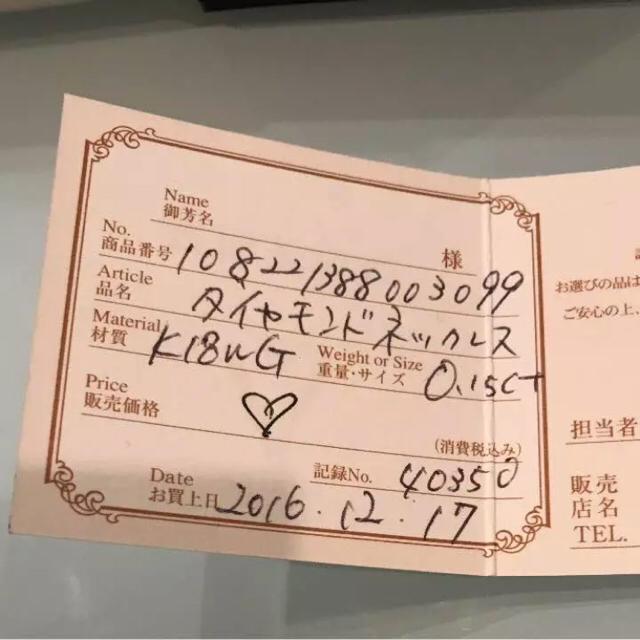 Name
御芳名
様
No.
商品番号 108221388003099
Article
品名 ダイヤモンドネックレス
Material
材質 K18WG Weight or Size
重量・サイズ 0.15ct
Price
販売価格 ♡
(消費税込み)
記録No. 40350
Date
お買上日 2016.12.17
お選びの品は
ご安心の上、
担当者
販売
店名
TEL.